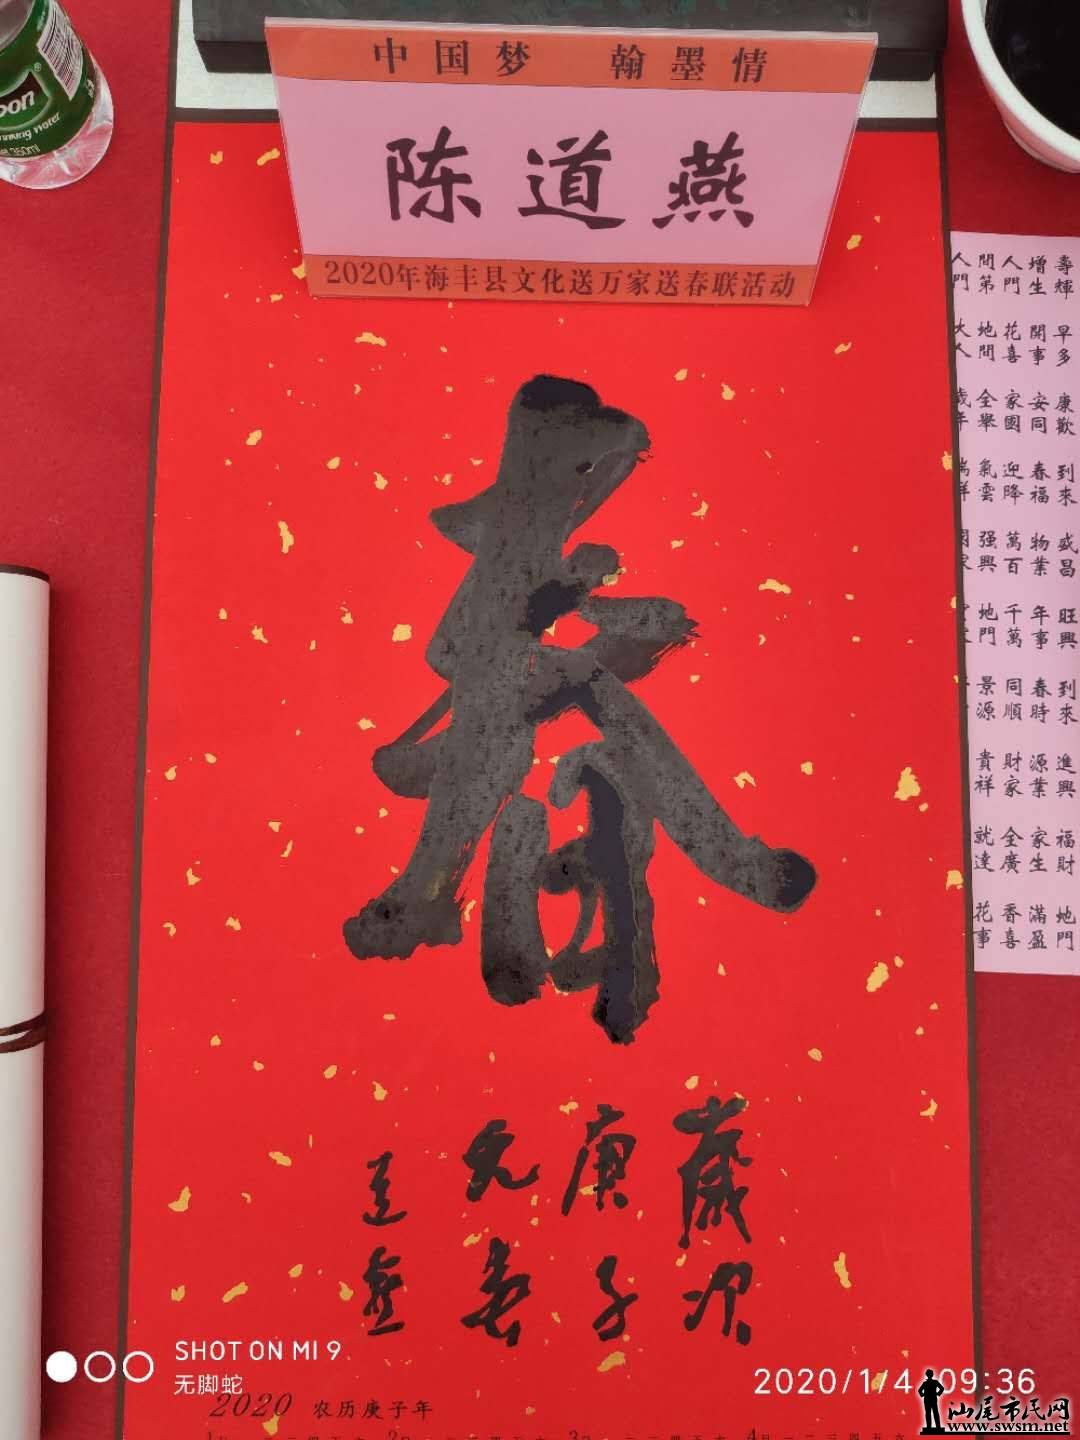 中国梦 翰墨情
陈道燕
2020年海丰县文化送万家送春联活动
春
歲次
庚子
元春
道燕
壽早康到盛旺到進福地
輝多歡來昌興來興財門
增開安春物年春源家滿
生事同福業事時業生盈
人花家迎萬千同財全香
門喜國降百萬順家廣喜
間地全氣强地景貴就花
第間舉雲興門源祥達事
SHOT ON MI 9
无脚蛇
2020 农历庚子年
2020/1/4 09:36
汕尾市民网
www.swsm.net
350ml